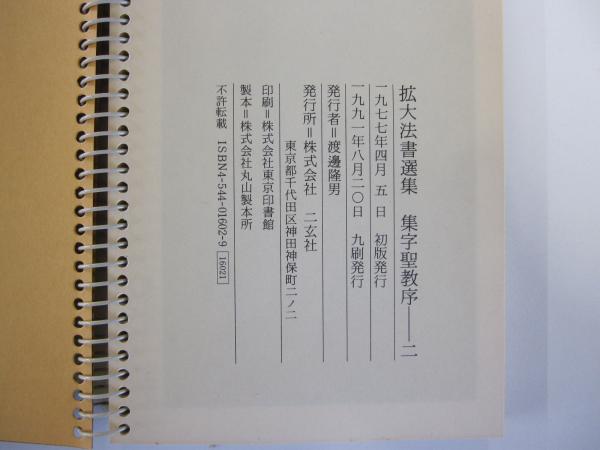 拡大法書選集　集字聖教序──二
一九七七年四月　五　日　初版発行
一九九一年八月二〇日　九刷発行
発行者＝渡邊隆男
発行所＝株式会社　二玄社
東京都千代田区神田神保町二ノ二
印刷＝株式会社東京印書館
製本＝株式会社丸山製本所
不許転載　ISBN4-544-01602-9 16021